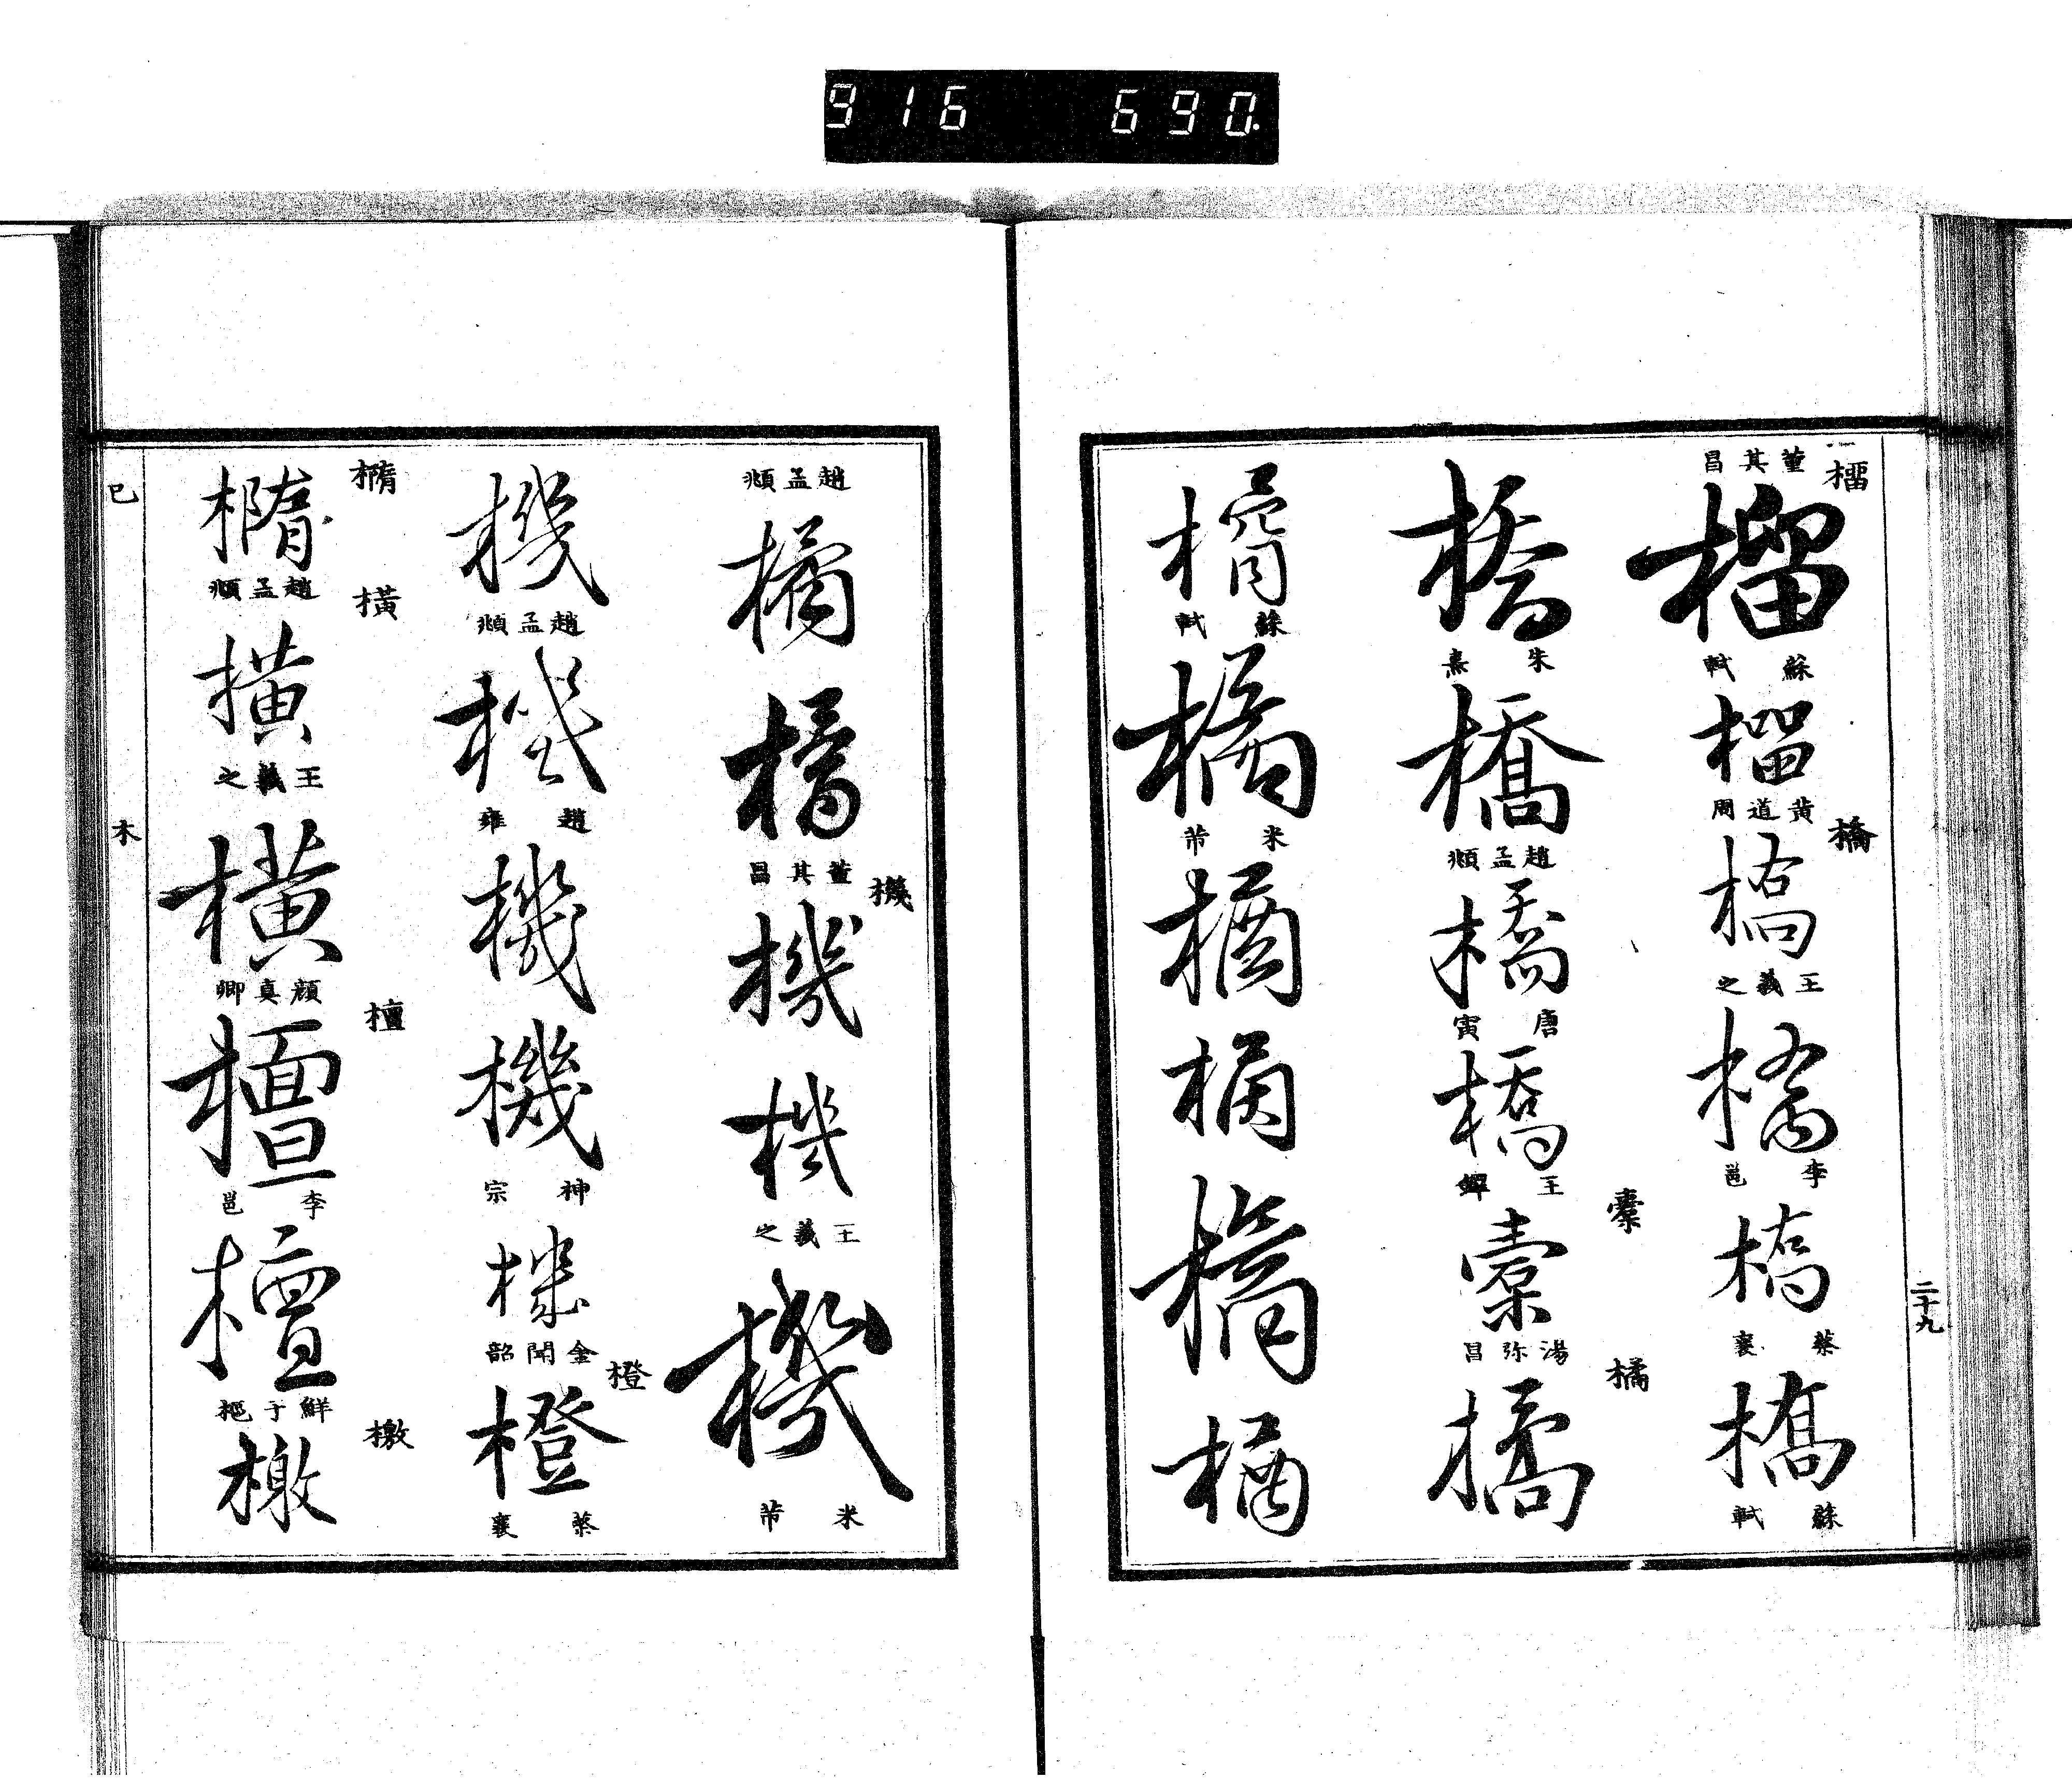 916 690.
橊
董其昌
榴
蘇軾
榴
黃道周
橋
橋
王羲之
橋
李邕
橋
蔡襄
橋
蘇軾
橋
朱熹
橋
趙孟頫
橋
唐寅
橋
王鐸
橐
橐
湯弥昌
橘
橘
橘
蘇軾
橘
米芾
橘
橘
橘
橘
二十九
趙孟頫
橘
橘
董其昌
機
機
機
王羲之
機
米芾
機
趙孟頫
機
趙雍
機
機
神宗
機
金開韶
橙
橙
蔡襄
橢
橢
趙孟頫
橫
橫
王羲之
橫
顏真卿
檀
檀
李邕
檀
鮮于樞
檄
檄
巳
木